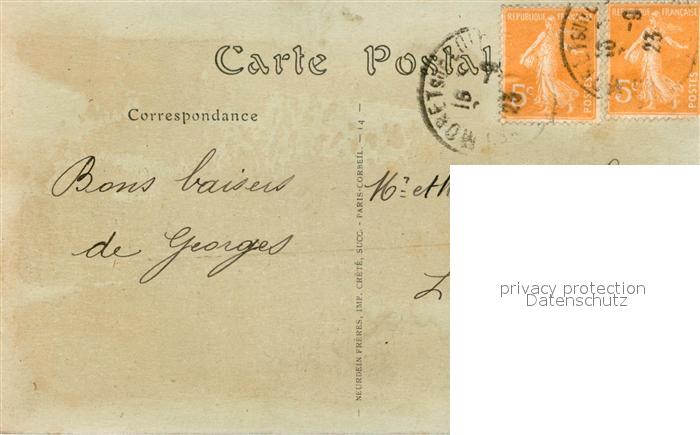 Carte Postale
REPUBLIQUE FRANÇAISE
5c
POSTES
REPUBLIQUE FRANÇAISE
5c
POSTES
MORET SUR
16 -9
23
16 -9
23
Correspondance
Bons baisers
de Georges
NEURDEIN FRÈRES, IMP. CRÉTÉ, SUCC. - PARIS-CORBEIL. - 14 -
Mr et M
L
privacy protection
Datenschutz